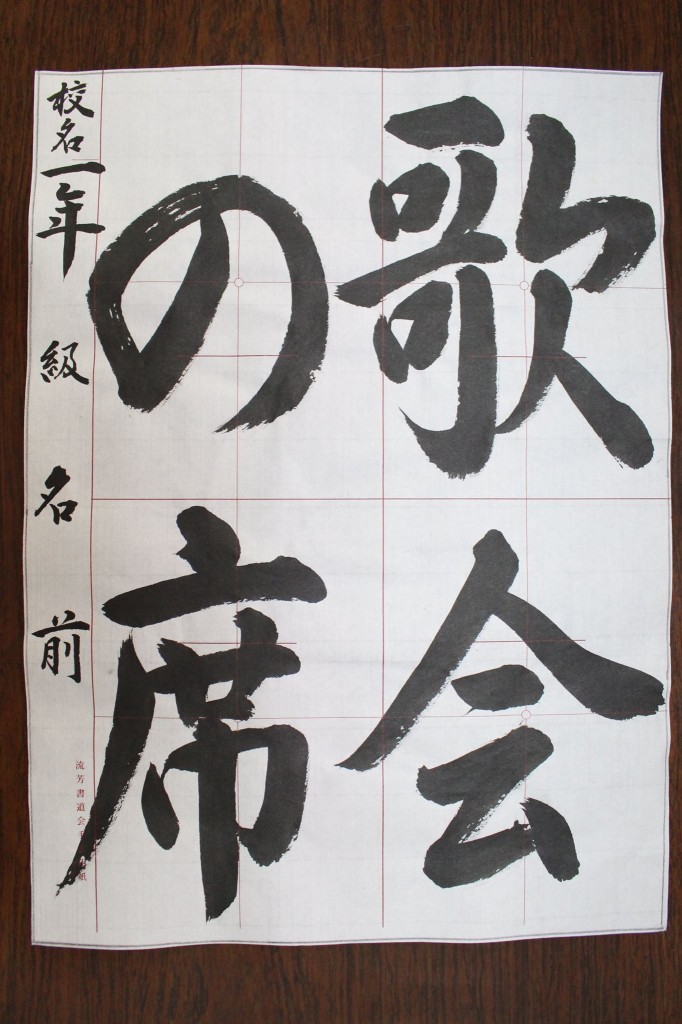 歌会
の席
校名一年 級 名 前
流芳書道会